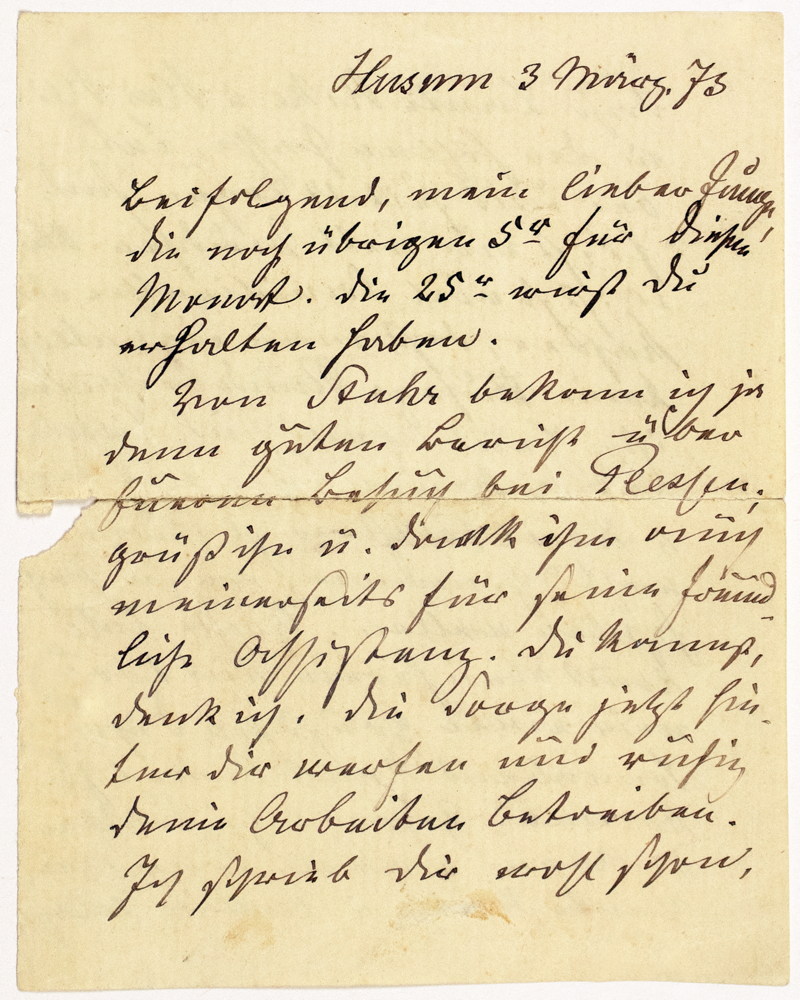 Husum 3 März. 73
Beifolgend, mein lieber Junge,
die noch übrigen 5 r für diesen
Monat. Die 25 r wirst Du
erhalten haben.
Von Stuhr bekomm ich ja
denn guten Bericht über
Eueren Besuch bei Plessen;
grüß ihn u. dank ihm auch
meinerseits für seine freund-
liche Assistenz. Du kannst,
denk ich, die Sorge jetzt hin-
ter dir werfen und ruhig
deine Arbeiten betreiben.
Ich schrieb Dir wohl schon,